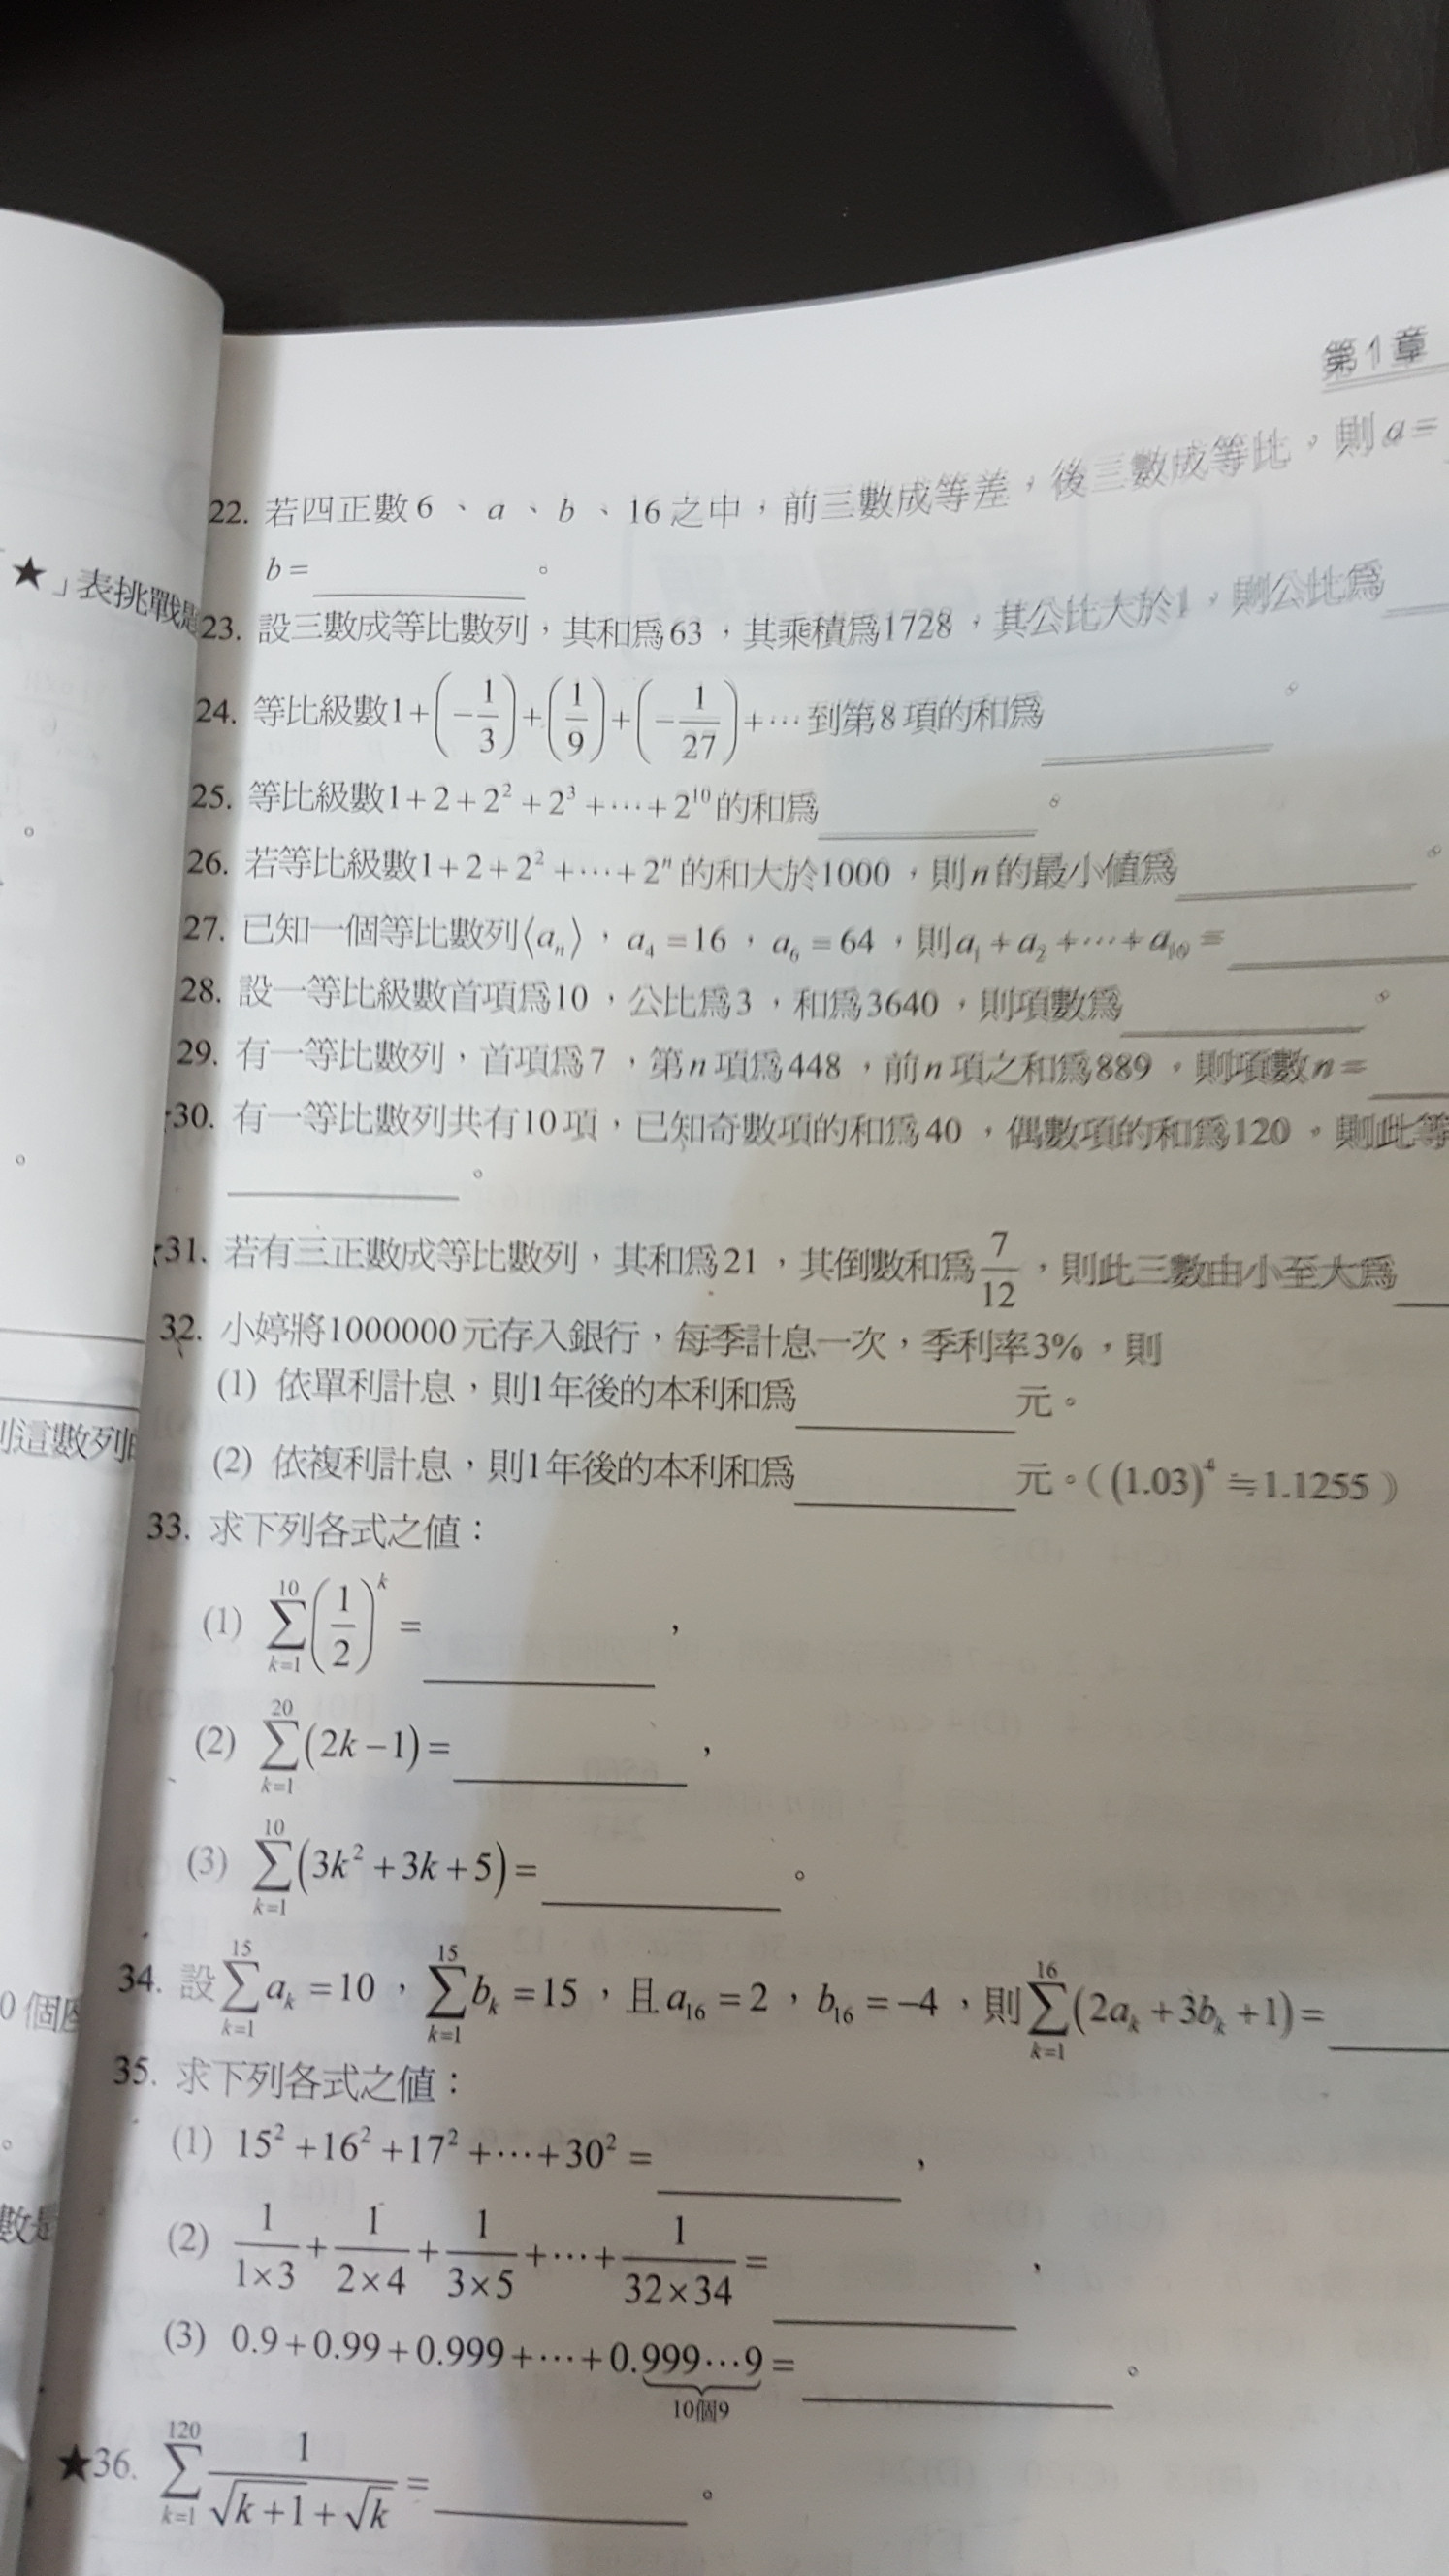 第1章
22. 若四正數6、a、b、16之中，前三數成等差，後三數成等比，則a=
b=＿＿＿＿。
「★」表挑戰題
23. 設三數成等比數列，其和為63，其乘積為1728，其公比大於1，則公比為
24. 等比級數1+(-1/3)+(1/9)+(-1/27)+⋯到第8項的和為＿＿＿＿。
25. 等比級數1+2+2²+2³+⋯+2¹⁰的和為＿＿＿＿。
26. 若等比級數1+2+2²+⋯+2ⁿ的和大於1000，則n的最小值為＿＿＿＿。
27. 已知一個等比數列⟨aₙ⟩，a₄=16，a₆=64，則a₁+a₂+⋯+a₁₀=
28. 設一等比級數首項為10，公比為3，和為3640，則項數為＿＿＿＿。
29. 有一等比數列，首項為7，第n項為448，前n項之和為889，則項數n=
30. 有一等比數列共有10項，已知奇數項的和為40，偶數項的和為120，則此等
＿＿＿＿。
31. 若有三正數成等比數列，其和為21，其倒數和為7/12，則此三數由小至大為
32. 小婷將1000000元存入銀行，每季計息一次，季利率3%，則
(1) 依單利計息，則1年後的本利和為＿＿＿＿元。
(2) 依複利計息，則1年後的本利和為＿＿＿＿元。((1.03)⁴≒1.1255)
這數列
33. 求下列各式之值：
(1) ∑_{k=1}^{10}(1/2)^k=＿＿＿＿，
(2) ∑_{k=1}^{20}(2k-1)=＿＿＿＿，
(3) ∑_{k=1}^{10}(3k²+3k+5)=＿＿＿＿。
34. 設∑_{k=1}^{15}a_k=10，∑_{k=1}^{15}b_k=15，且a₁₆=2，b₁₆=-4，則∑_{k=1}^{16}(2a_k+3b_k+1)=
0個
35. 求下列各式之值：
(1) 15²+16²+17²+⋯+30²=＿＿＿＿，
數是
(2) 1/(1×3)+1/(2×4)+1/(3×5)+⋯+1/(32×34)=＿＿＿＿，
(3) 0.9+0.99+0.999+⋯+0.999⋯9=＿＿＿＿。
10個9
★36. ∑_{k=1}^{120} 1/(√(k+1)+√k)=＿＿＿＿。